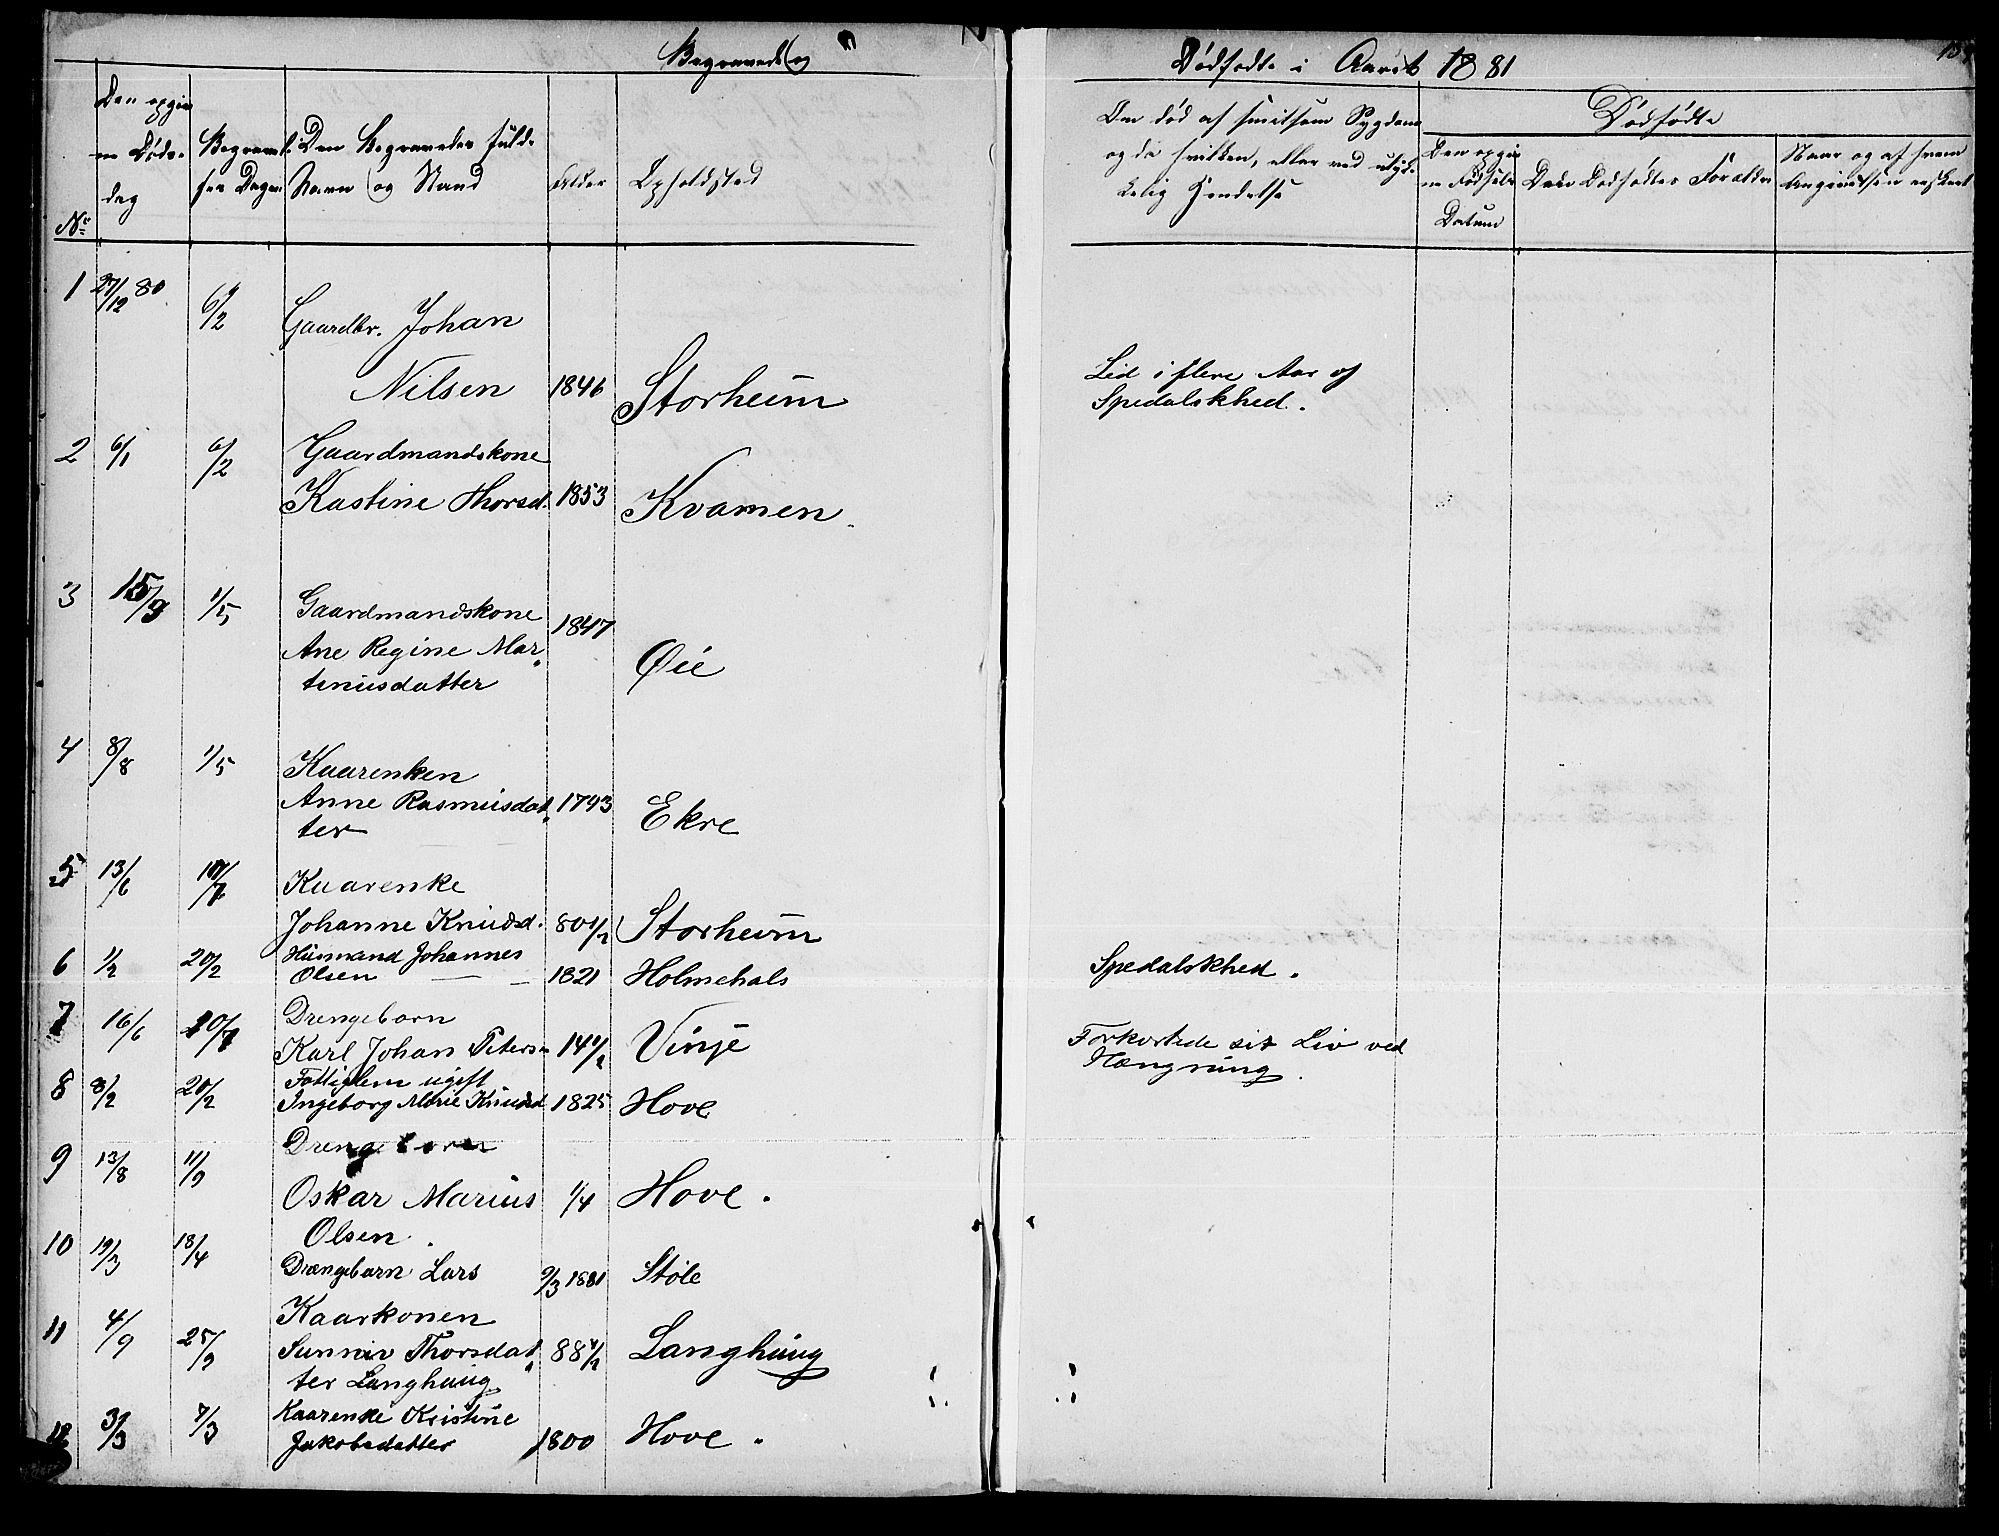 Begravede og
Dødfødte i Aaret 1881
Nr.
Den opgivne Dødsdag
Begravelsen Dagen
Den Begravedes fulde Navn og Stand
Alder
Opholdsted
Om død af smitsom Sygdom
og da hvilken, eller ved ulyk-
kelig Hendelse
Dødfødte
Den opgivne Fødsels Datum
Den Dødfødtes Forældre
Naar og af hvem
1 27/12 80 6/2 Gaardbr. Johan
Nilsen 1846 Storheim
Led i flere Aar af
Spedalskhed.
2 6/1 6/2 Gaardmandskone
Kastine Thorsd. 1853 Kvamen
3 15/3 1/5 Gaardmandskone
Ane Regine Mar-
tinusdatter 1847 Øie
4 8/8 1/5 Kaarenken
Anne Rasmusdat-
ter 1793 Ekre
5 13/6 Kaarenke
Johanne Knudsd. 80 1/2 Storheim
6 1/2 20/2 Husmand Johannes
Olsen 1821 Holmehals
Spedalskhed.
7 16/6 10/7 Drengebarn
Karl Johan Peters. 14 1/2 Vinje
Forkortede sit Liv ved
Hængning.
8 8/2 20/2 Fattiglem ugift
Ingeborg Marie Knudsd 1825 Hove
9 13/8 11/9 Drengebarn
Oskar Marius 1/4 Hove.
Olsen.
10 19/3 18/4 Drængebarn Lars 9/3 1881 Støle
11 4/9 25/9 Kaarkonen
Sunniv Thorsdat-
ter Langhaug 88 1/2 Langhaug
12 3/3 7/3 Kaarenke Kristine
Jakobsdatter 1800 Hove.